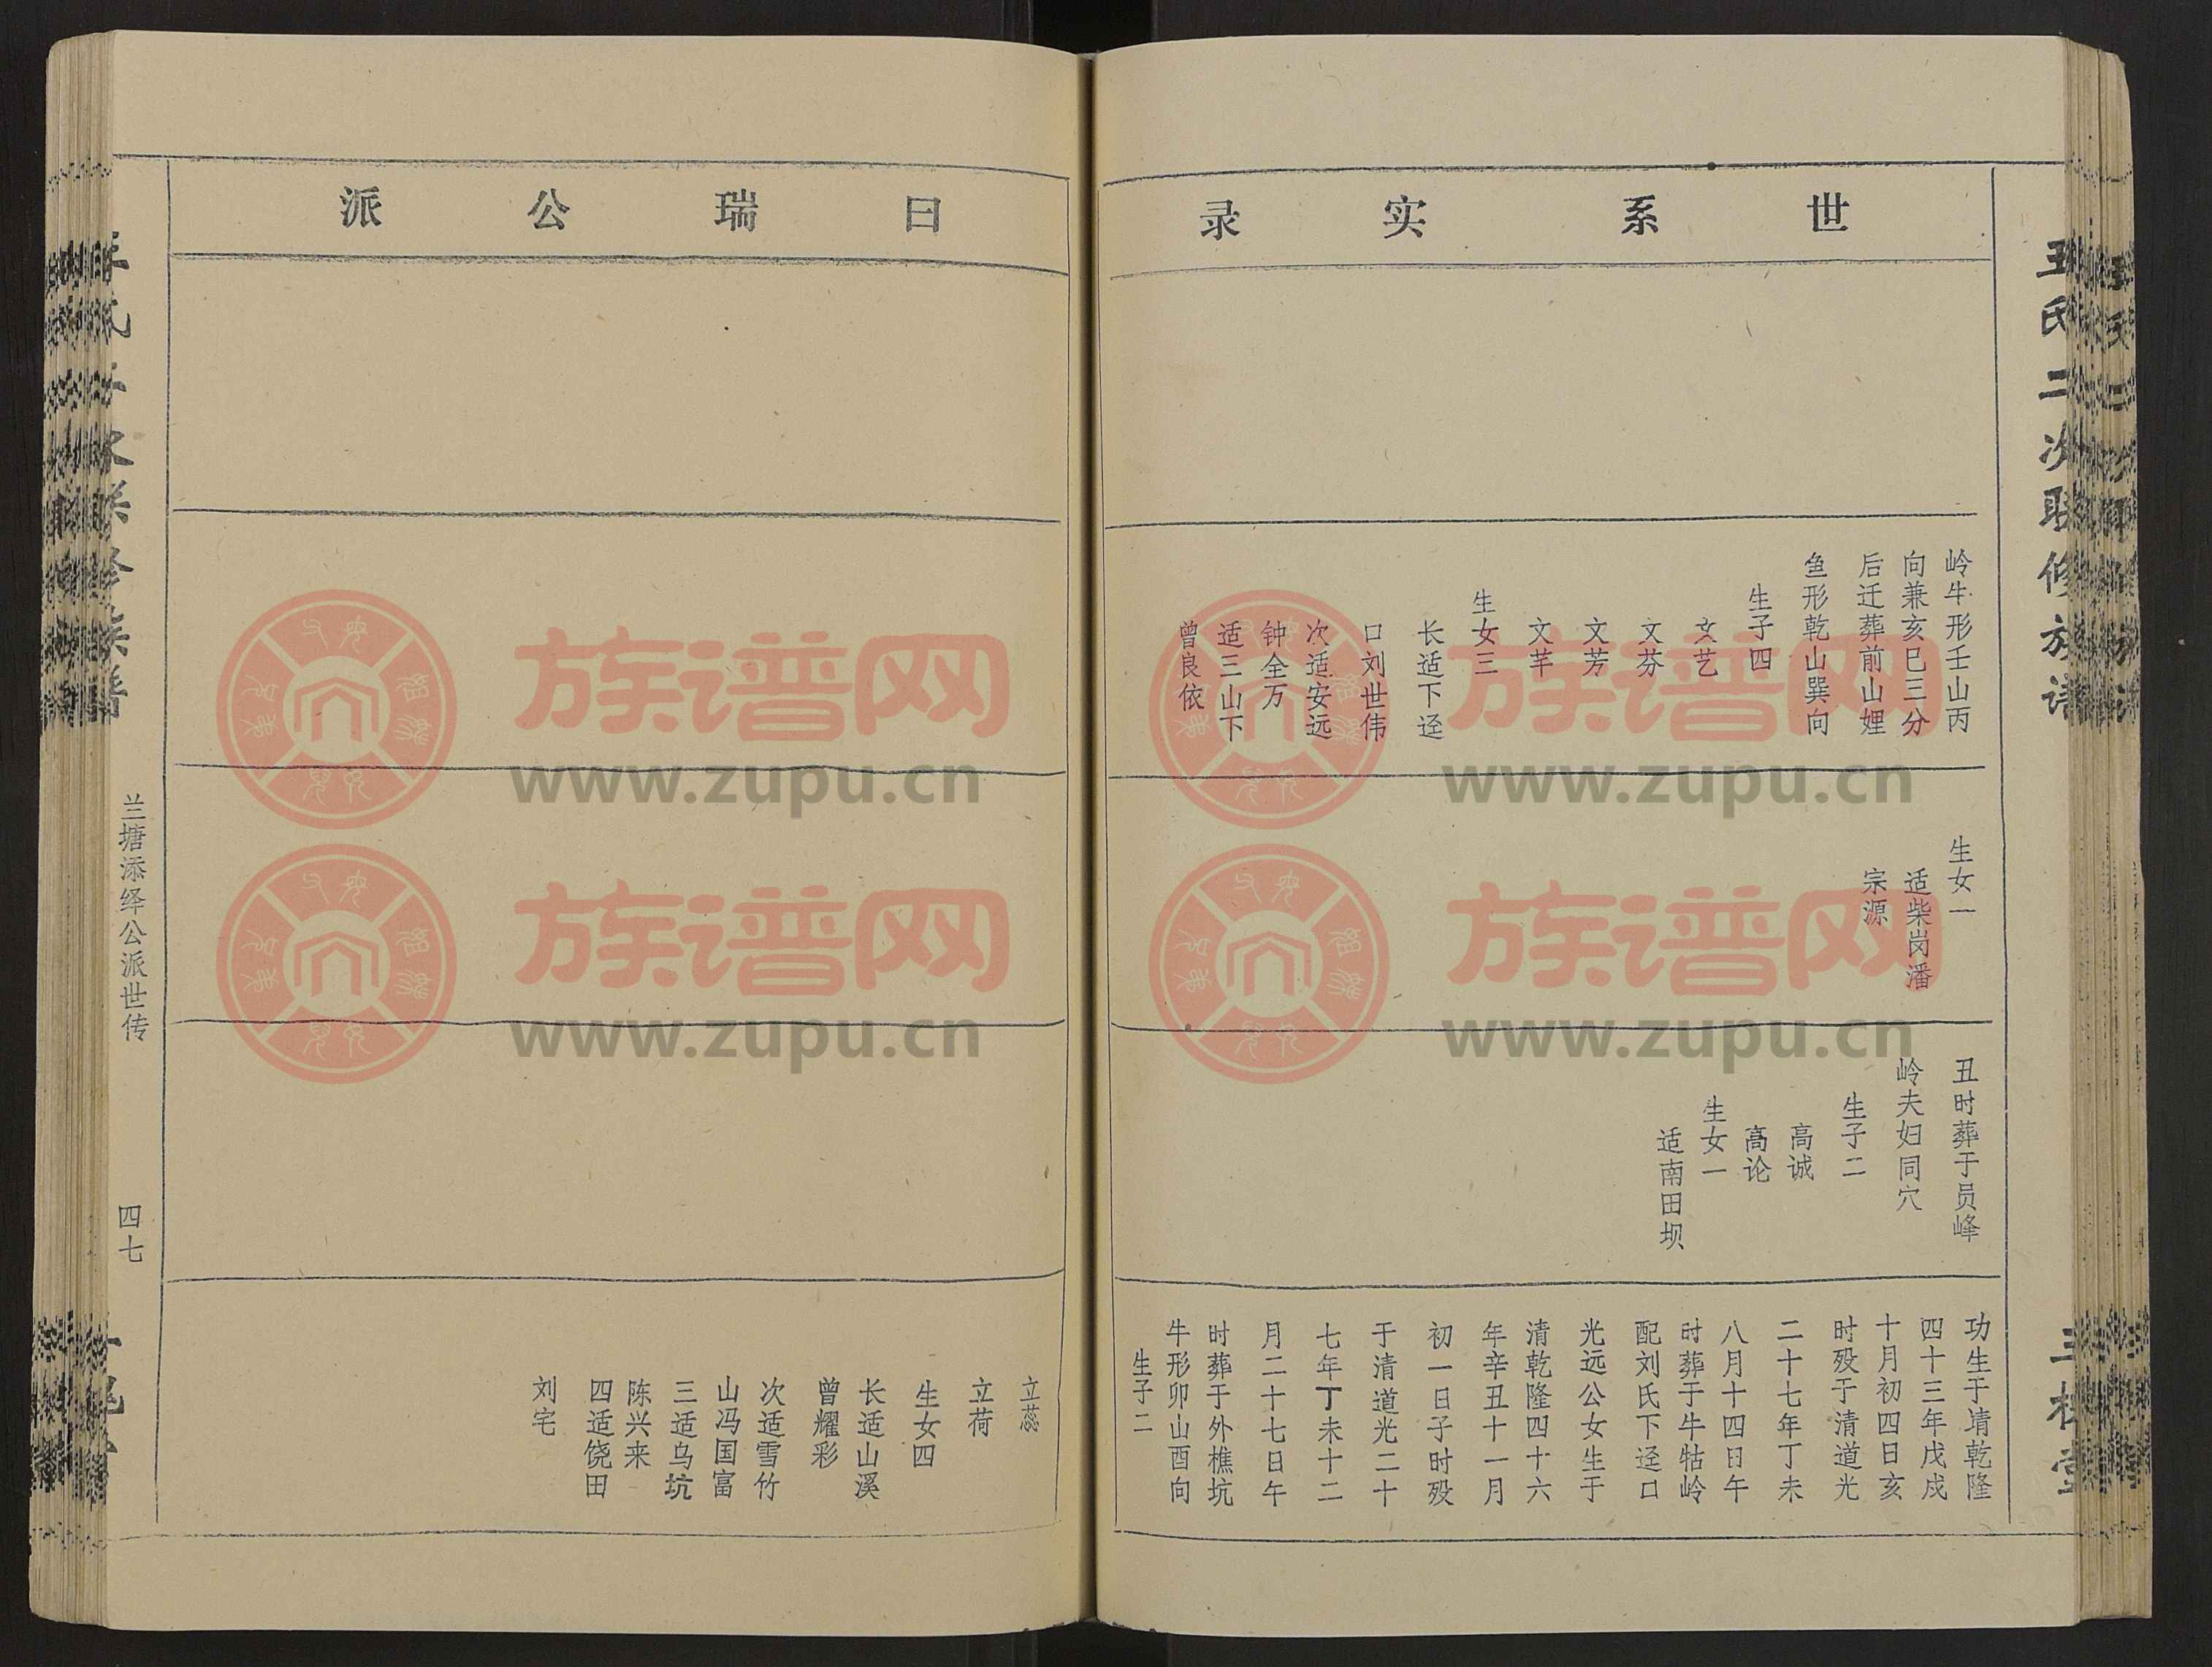 王氏二次联修族谱
三槐堂
世系实录
岭牛形壬山丙
向兼亥巳三分
后迁葬前山娌
鱼形乾山巽向
生子四
文艺
文芬
文芳
文芊
生女三
长适下迳
口刘世伟
次适安远
钟全万
适三山下
曾良依
生女一
适柴岗潘
宗源
丑时葬于员峰
岭夫妇同穴
生子二
高诚
高论
生女一
适南田坝
功生于清乾隆
四十三年戊戌
十月初四日亥
时殁于清道光
二十七年丁未
八月十四日午
时葬于牛牯岭
配刘氏下迳口
光远公女生于
清乾隆四十六
年辛丑十一月
初一日子时殁
于清道光二十
七年丁未十二
月二十七日午
时葬于外樵坑
牛形卯山酉向
生子二
曰瑞公派
立蕊
立荷
生女四
长适山溪
曾耀彩
次适雪竹
山冯国富
三适乌坑
陈兴来
四适饶田
刘宅
兰塘添绎公派世传
四七
族谱网
www.zupu.cn
族谱网
www.zupu.cn
族谱网
www.zupu.cn
族谱网
www.zupu.cn